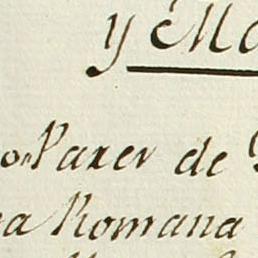 y Ma
on Parer de
ea Romana